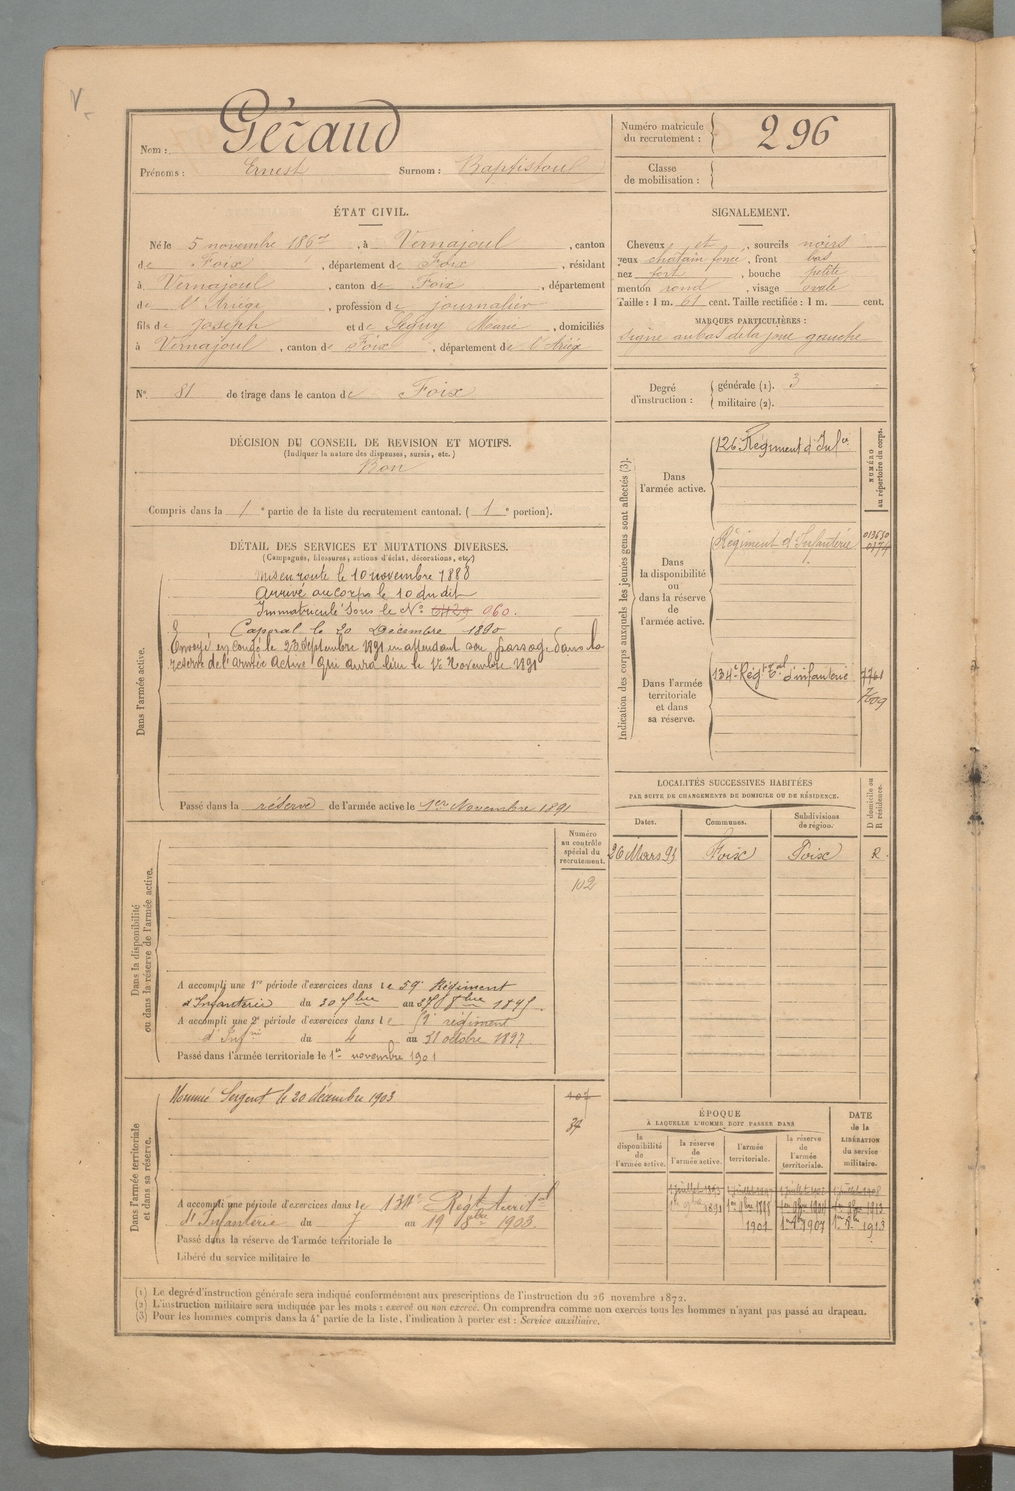 V
Nom : Géraud
Prénoms : Ernest Surnom : Baptistoul
Numéro matricule du recrutement : 296
Classe de mobilisation :
ÉTAT CIVIL.
Né le 5 novembre 1867, à Vernajoul, canton
de Foix, département de Foix, résidant
à Vernajoul, canton de Foix, département
de l'Ariège, profession de journalier
fils de Joseph et de Seguy Marie, domiciliés
à Vernajoul, canton de Foix, département de l'Ariège
SIGNALEMENT.
Cheveux et, sourcils noirs
yeux chatain foncé, front bas
nez fort, bouche petite
menton rond, visage ovale
Taille : 1 m. 61 cent. Taille rectifiée : 1 m. cent.
MARQUES PARTICULIÈRES :
Signe au bas de la joue gauche
N° 81 de tirage dans le canton de Foix
Degré d'instruction : générale (1). 3
militaire (2).
DÉCISION DU CONSEIL DE REVISION ET MOTIFS.
(Indiquer la nature des dispenses, sursis, etc.)
Bon
Compris dans la 1e partie de la liste du recrutement cantonal. ( 1e portion).
DÉTAIL DES SERVICES ET MUTATIONS DIVERSES.
(Campagnes, blessures, actions d'éclat, décorations, etc.)
Dans l'armée active.
Mis en route le 10 novembre 1888
Arrivé au corps le 10 du dit
Immatriculé sous le N° 960.
Caporal le 20 Décembre 1890
Envoyé en congé le 23 Septembre 1891 en attendant son passage dans la
réserve de l'armée Active qui aura lieu le 1er Novembre 1891
Passé dans la réserve de l'armée active le 1er Novembre 1891
Indication des corps auxquels les jeunes gens sont affectés (3).
NUMÉRO au répertoire du corps.
Dans l'armée active.
126 Régiment d'Infie
Dans la disponibilité ou dans la réserve de l'armée active.
Régiment d'Infanterie
Dans l'armée territoriale et dans sa réserve.
134e Régt Tal d'infanterie 7761
7609
LOCALITÉS SUCCESSIVES HABITÉES
PAR SUITE DE CHANGEMENTS DE DOMICILE OU DE RÉSIDENCE.
Dates. Communes. Subdivisions de région. D domicile ou R résidence.
26 Mars 95 Foix Foix R.
Dans la disponibilité ou dans la réserve de l'armée active.
Numéro au contrôle spécial du recrutement.
102
A accompli une 1re période d'exercices dans le 59e Régiment
d'Infanterie du 30 7bre au 27 8bre 1895
A accompli une 2e période d'exercices dans le régiment
d'Infrie du 4 au 31 octobre 1897
Passé dans l'armée territoriale le 1er novembre 1901
Dans l'armée territoriale et dans sa réserve.
Nommé Sergent le 20 décembre 1903
107
A accompli une période d'exercices dans le 134e Régt territal
d'Infanterie du 7 au 19 8bre 1903.
Passé dans la réserve de l'armée territoriale le
Libéré du service militaire le
ÉPOQUE
À LAQUELLE L'HOMME DOIT PASSER DANS
la disponibilité de l'armée active. la réserve de l'armée active. l'armée territoriale. la réserve de l'armée territoriale.
DATE de la LIBÉRATION du service militaire.
1901 1907 1913
(1) Le degré d'instruction générale sera indiqué conformément aux prescriptions de l'instruction du 26 novembre 1872.
(2) L'instruction militaire sera indiquée par les mots : exercé ou non exercé. On comprendra comme non exercés tous les hommes n'ayant pas passé au drapeau.
(3) Pour les hommes compris dans la 4e partie de la liste, l'indication à porter est : Service auxiliaire.